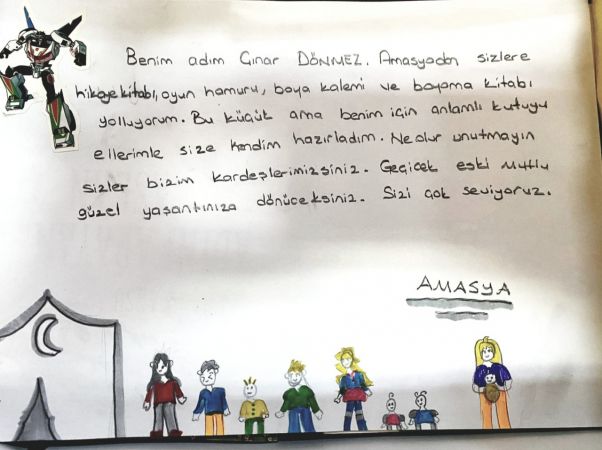 Benim adım Çınar DÖNMEZ. Amasyadan sizlere
hikaye kitabı, oyun hamuru, boya kalemi ve boyama kitabı
yolluyorum. Bu küçük ama benim için anlamlı kutuyu
ellerimle size kendim hazırladım. Ne olur unutmayın
sizler bizim kardeşlerimizsiniz. Geçicek eski mutlu
güzel yaşantınıza dönüceksiniz. Sizi çok seviyoruz.
AMASYA